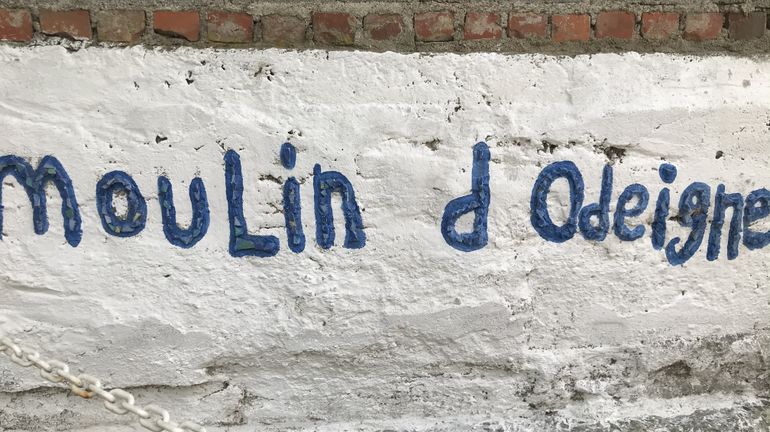 mouLin d Odeigne